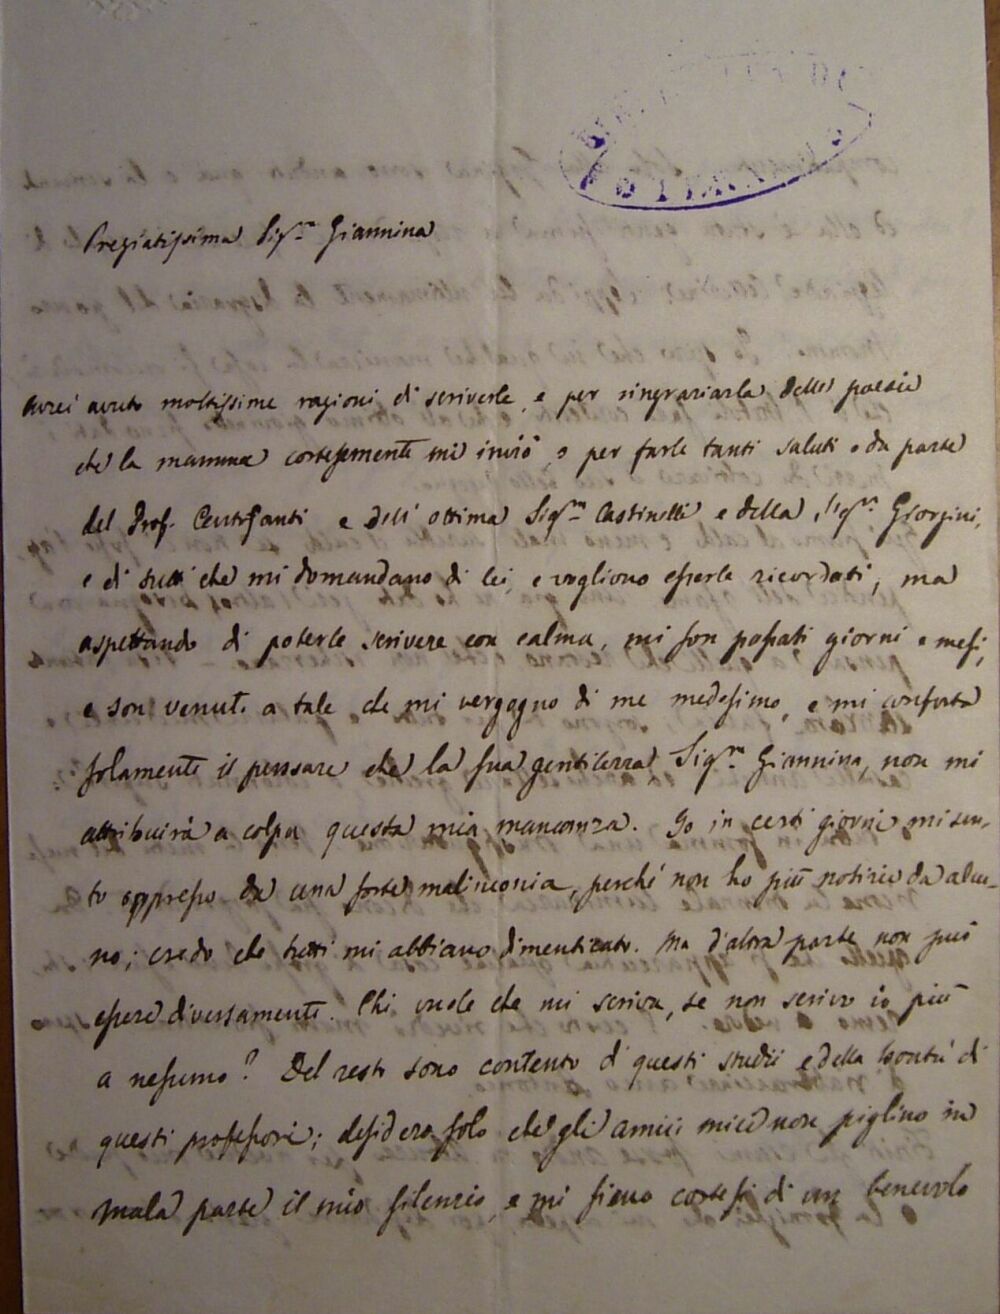 Pregiatissima Sigra Giannina
Avrei avuto moltissime ragioni di scriverle, e per ringraziarla delle poesie
che la mamma cortesemente mi inviò, e per farle tanti saluti e da parte
del Prof. Centofanti e dell' ottima Sigra Castinelli e della Sigra Giorgini,
e di tutti che mi domandano di lei, e vogliono esserle ricordati, ma
aspettando di poterle scrivere con calma, mi son passati giorni e mesi,
e son venuto a tale che mi vergogno di me medesimo, e mi conforta
solamente il pensare che la sua gentilezza Sigra Giannina, non mi
attribuirà a colpa questa mia mancanza. Io in certi giorni mi sen-
to oppresso da una forte malinconia, perché non ho più notizie da alcu-
no; credo che tutti mi abbiano dimenticato. Ma d'altra parte non può
essere diversamente. Chi vuole che mi scriva, se non scrivo io più
a nessuno? Del resto sono contento di questi studii e della bontà di
questi professori; desidero solo che gli amici miei non piglino in
mala parte il mio silenzio, e mi sieno cortesi di un benevolo